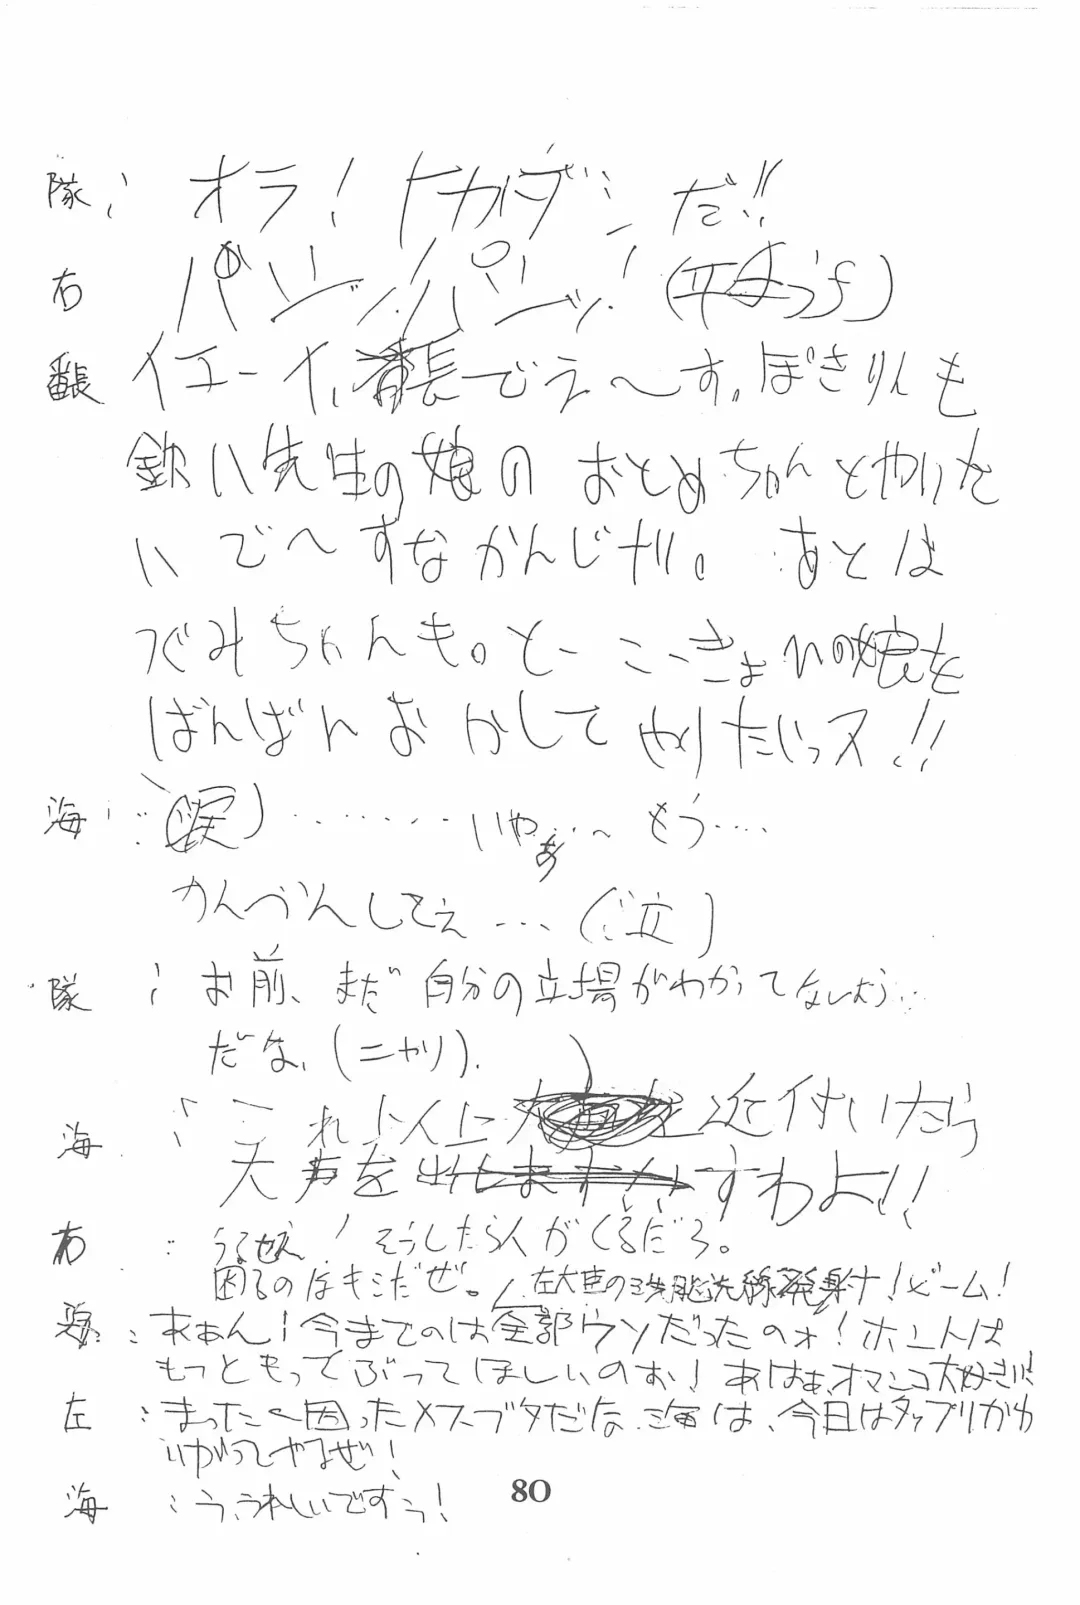 隊: オラ! トカゲ だ!!
右 パンッ!パンッ! (平 )
番長 イエーイ、番長でえ〜す。ぼきりんも
欽八先生の娘のおとめちゃんとやりた
いで〜すなかんじナリ。あとは
ぐみちゃんも。と
ばんばんおかしてやりたいっス!!
海: (涙)・・・・・・・いやぁ・・〜もう・・・・
かんべんしてえ・・・(泣)
隊: お前、まだ自分の立場がわかってないよう
だな、(ニヤリ).
海: これ以上 近付いたら
大声を出しますわよ!!
右: うるせえ! そうしたら人がくるだろ。
困るのはキミだぜ。左大臣の洗脳光線発射ナ!ビーム!
海: あぁん!今までのは全部ウソだったのォ!ホントは
もっともってぶってほしいのぉ!あはぁ、オマンコ大好き!!
左: まった〜困ったメスブタだな海は、今日はタップリかわ
いがってやるぜ!
海: う、うれしいですぅ!
80